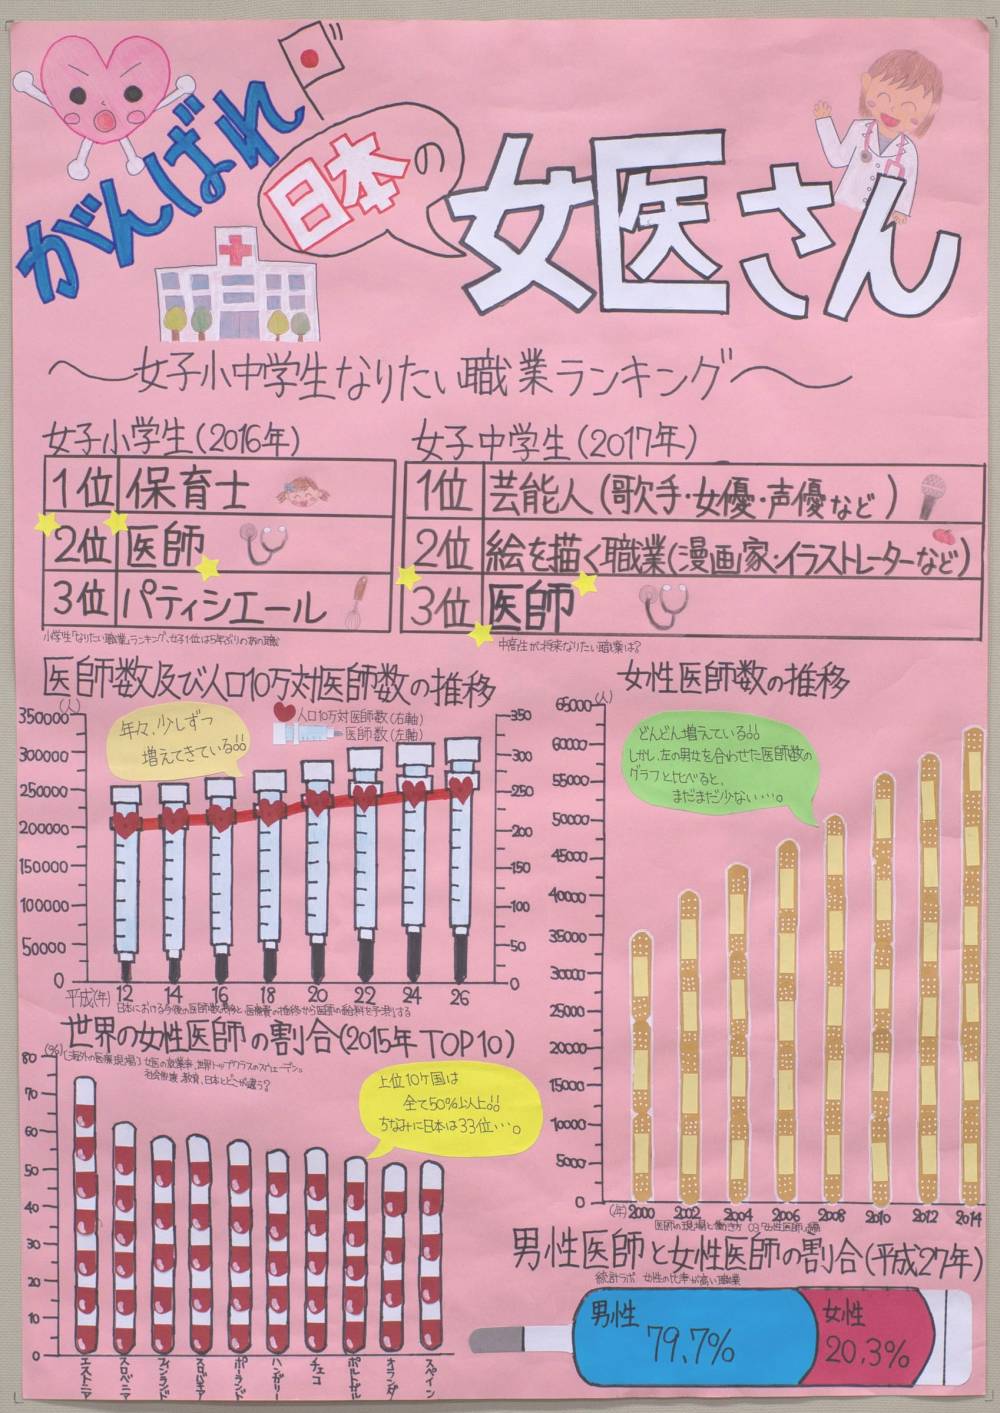 がんばれ
日本の
女医さん
〜女子小中学生なりたい職業ランキング〜
女子小学生(2016年)
1位 保育士
2位 医師
3位 パティシエール
小学生「なりたい職業」ランキング、女子1位は5年ぶりのあの職
女子中学生(2017年)
1位 芸能人(歌手・女優・声優など)
2位 絵を描く職業(漫画家・イラストレーターなど)
3位 医師
中高生が将来なりたい職業は?
医師数及び人口10万対医師数の推移
(人)
年々、少しずつ
増えてきている!!
人口10万対医師数(右軸)
医師数(左軸)
350000
300000
250000
200000
150000
100000
50000
0
350
300
250
200
150
100
50
0
平成(年) 12 14 16 18 20 22 24 26
女性医師数の推移
(人)
どんどん増えている!!
しかし、左の男女を合わせた医師数の
グラフと比べると、
まだまだ少ない…。
65000
60000
55000
50000
45000
40000
35000
30000
25000
20000
15000
10000
5000
0
(年) 2000 2002 2004 2006 2008 2010 2012 2014
世界の女性医師の割合(2015年TOP10)
(%)
上位10ヶ国は
全て50%以上!!
ちなみに日本は33位…。
80
70
60
50
40
30
20
10
0
エストニア
スロベニア
フィンランド
スロバキア
ポーランド
ハンガリー
チェコ
ポルトガル
オランダ
スペイン
男性医師と女性医師の割合(平成27年)
統計ラボ 女性の比率が高い職業
男性
79.7%
女性
20.3%